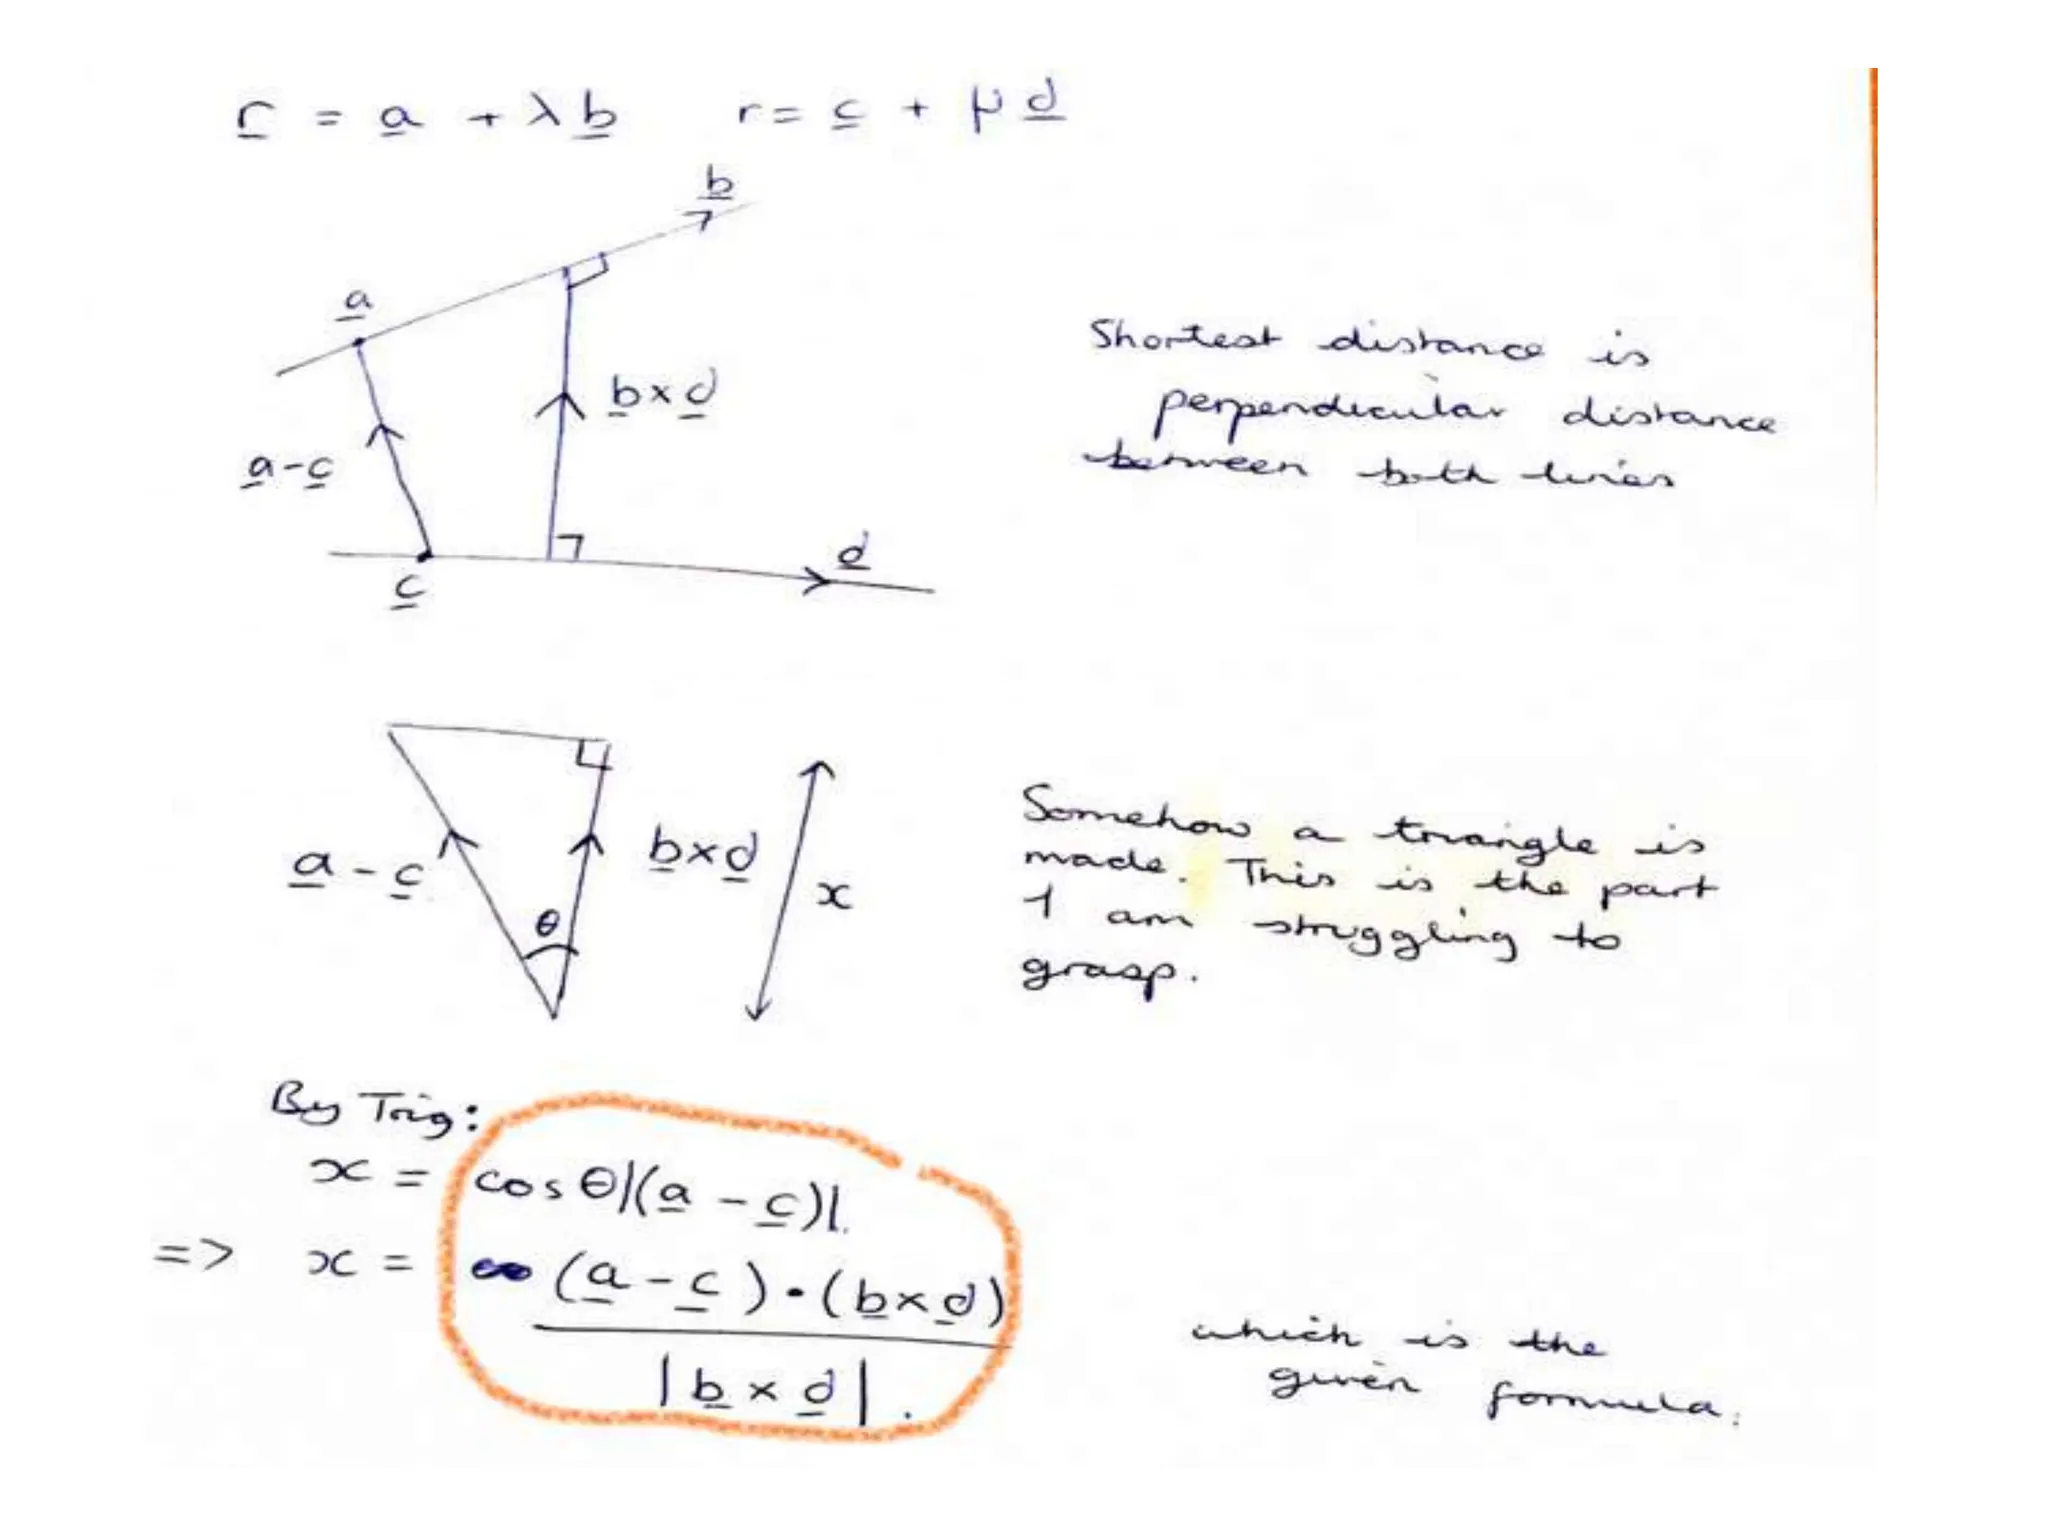 r = a + λb r = c + μd
b
a
b×d
a-c
d
c
Shortest distance is
perpendicular distance
between both lines
a - c
b×d
x
θ
Somehow a triangle is
made. This is the part
I am struggling to
grasp.
By Trig:
x = cos θ|(a - c)|.
=> x = (a - c) • (b×d)
|b × d|.
which is the
given formula.